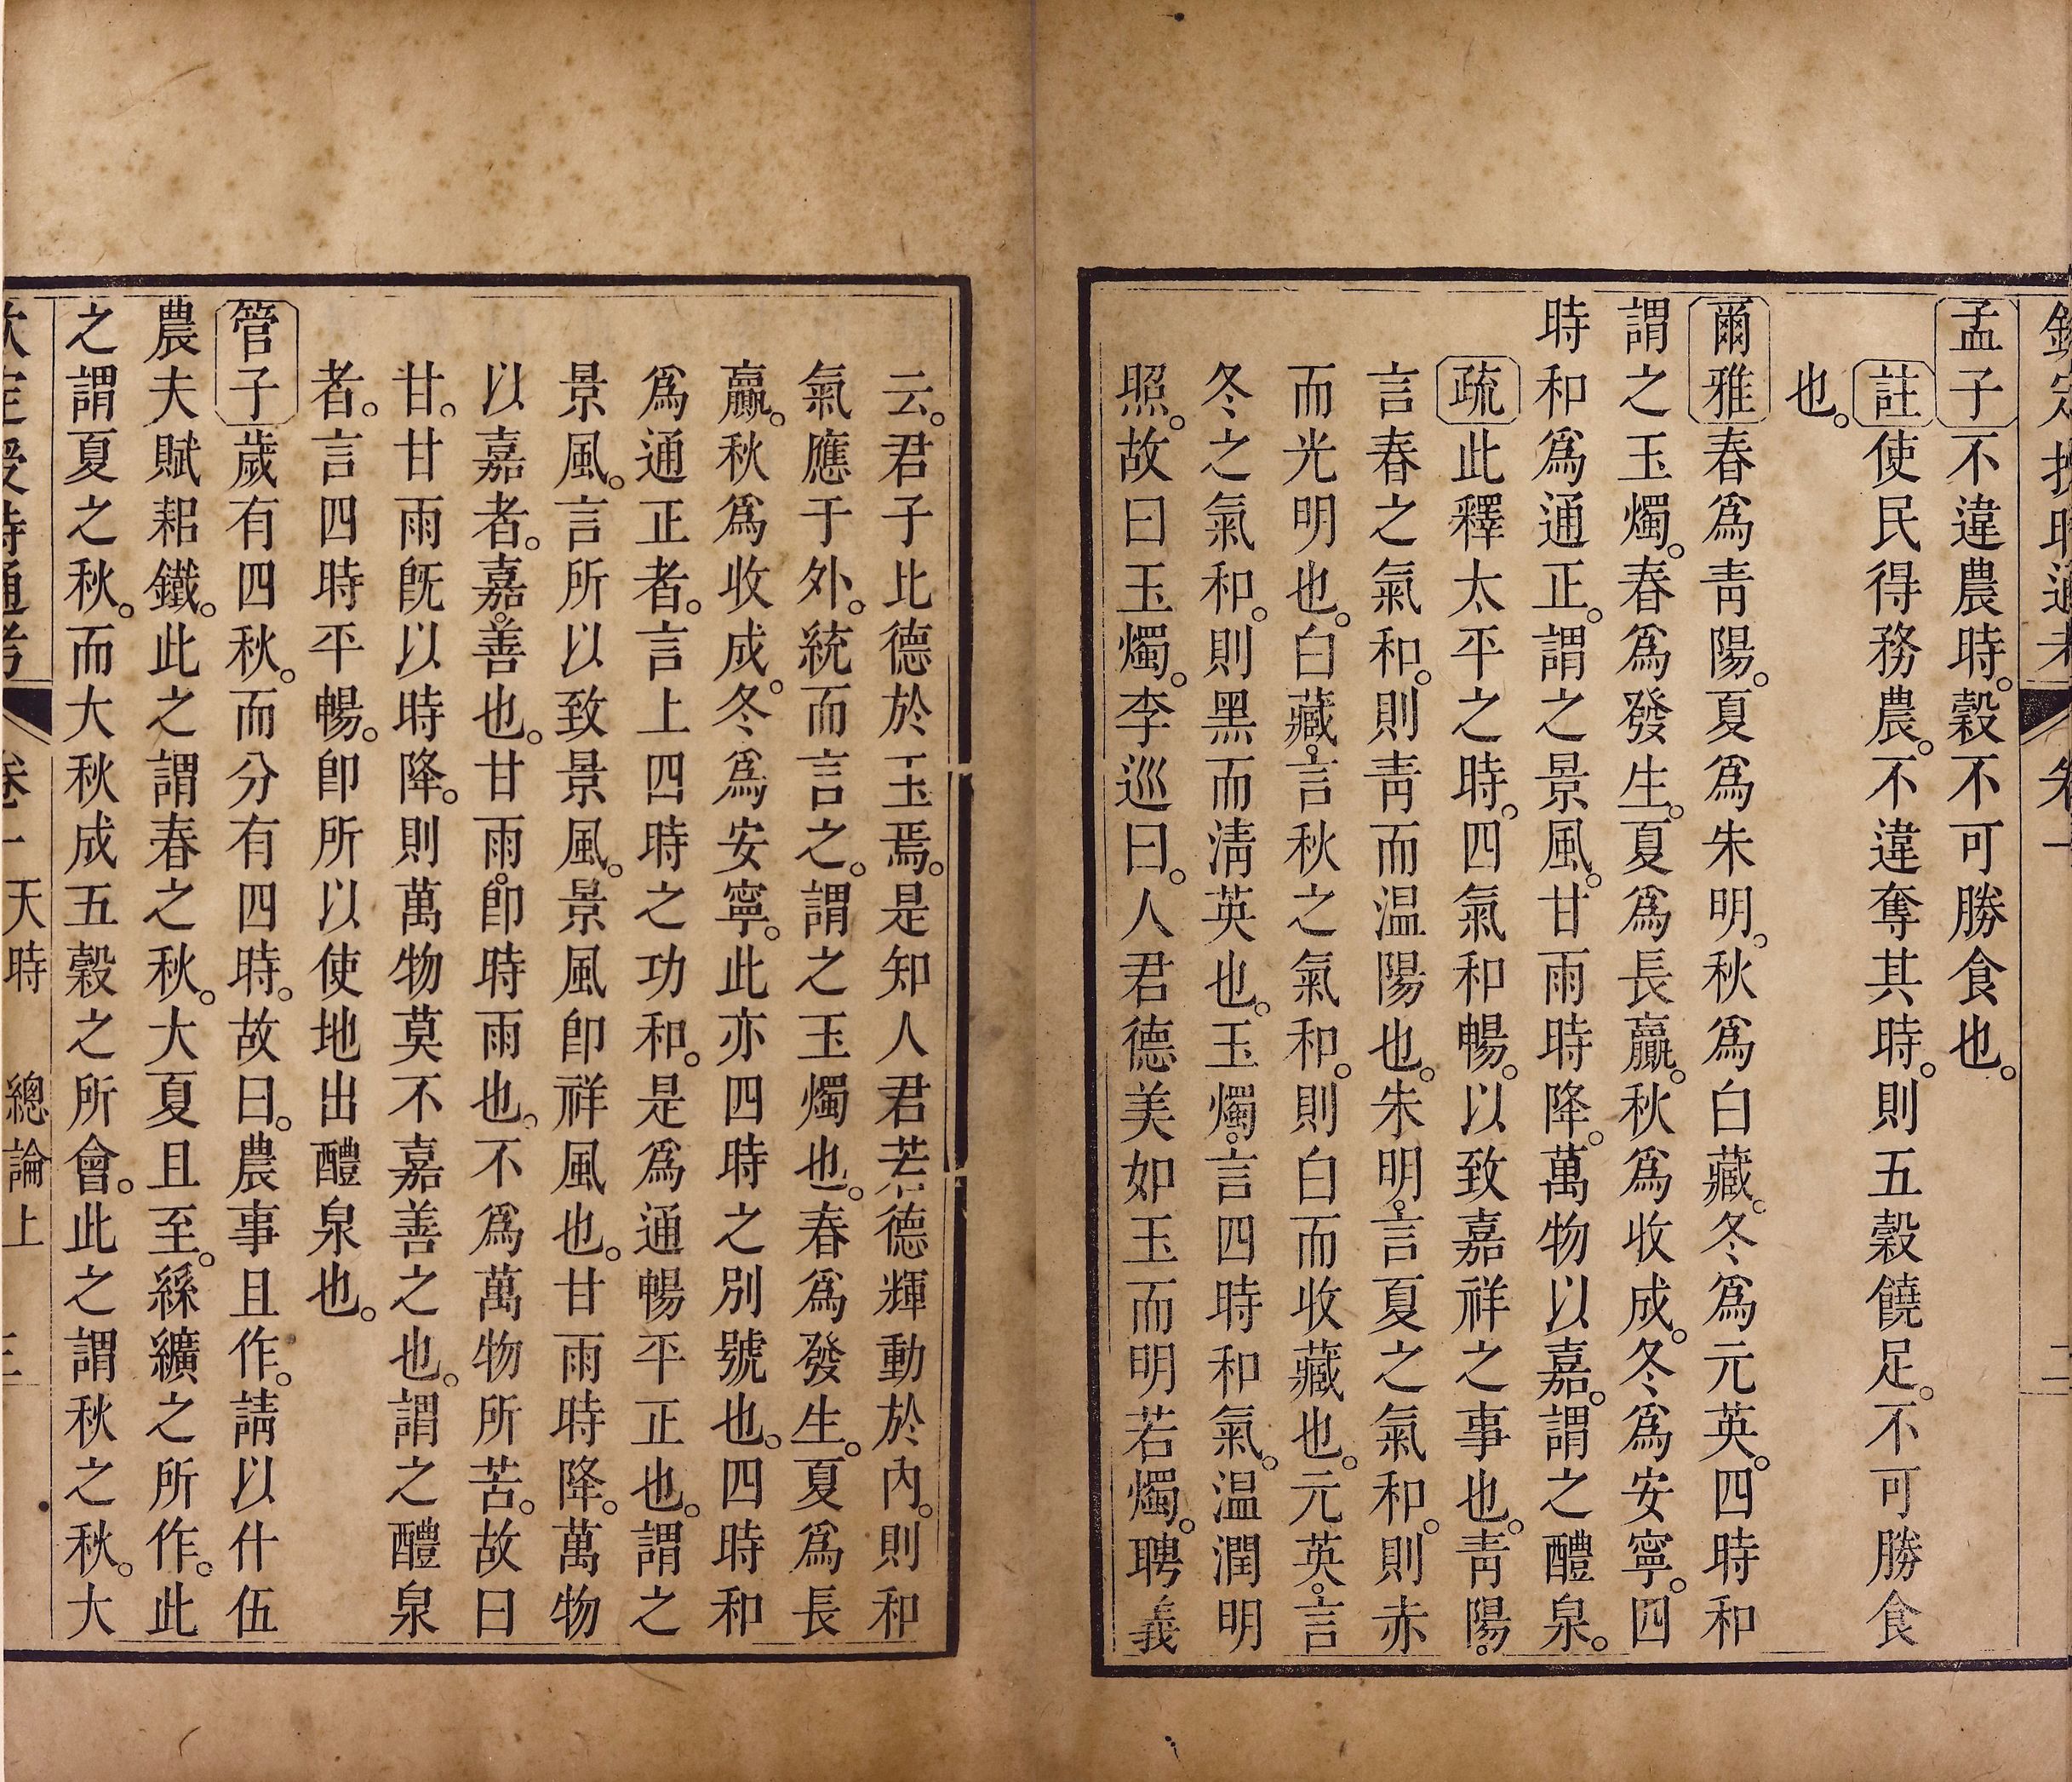 孟子不違農時。穀不可勝食也。
註使民得務農。不違奪其時。則五穀饒足。不可勝食
也。
爾雅春爲青陽。夏爲朱明。秋爲白藏。冬爲元英。四時和
謂之玉燭。春爲發生。夏爲長贏。秋爲收成。冬爲安寧。四
時和爲通正。謂之景風。甘雨時降。萬物以嘉。謂之醴泉。
疏此釋太平之時。四氣和暢。以致嘉祥之事也。青陽。
言春之氣和。則青而温陽也。朱明。言夏之氣和。則赤
而光明也。白藏。言秋之氣和。則白而收藏也。元英。言
冬之氣和。則黑而清英也。玉燭。言四時和氣。温潤明
照。故曰玉燭。李巡曰。人君德美如玉而明若燭。聘義
云。君子比德於玉焉。是知人君若德輝動於內。則和
氣應于外。統而言之。謂之玉燭也。春爲發生。夏爲長
贏。秋爲收成。冬爲安寧。此亦四時之別號也。四時和
爲通正者。言上四時之功和。是爲通暢平正也。謂之
景風。言所以致景風。景風卽祥風也。甘雨時降。萬物
以嘉者。嘉。善也。甘雨。卽時雨也。不爲萬物所苦。故曰
甘。甘雨旣以時降。則萬物莫不嘉善之也。謂之醴泉
者。言四時平暢。卽所以使地出醴泉也。
管子歲有四秋。而分有四時。故曰。農事且作。請以什伍
農夫賦耜鐵。此之謂春之秋。大夏且至。絲纊之所作。此
之謂夏之秋。而大秋成五穀之所會。此之謂秋之秋。大
欽定授時通考 卷一 天時 總論上 三